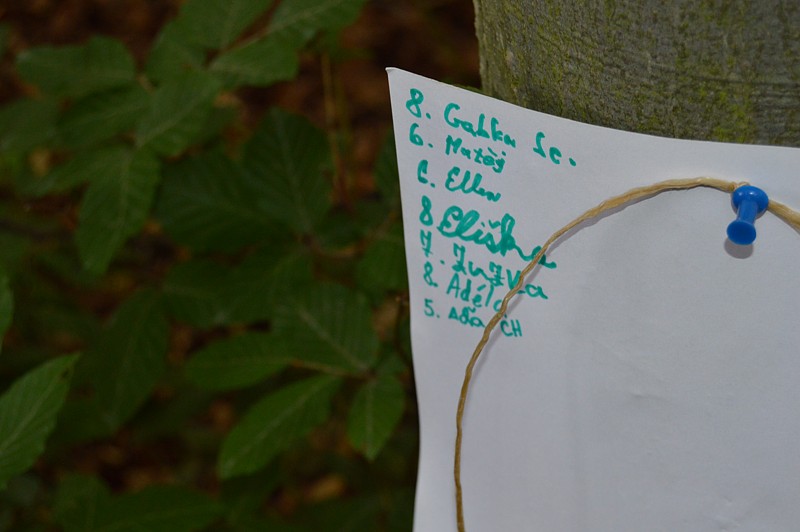 8. Gabka Sc.
6. Matěj
6. Ellen
8 Eliška
7. Zuzka
8. Adéla
5. Áďa CH